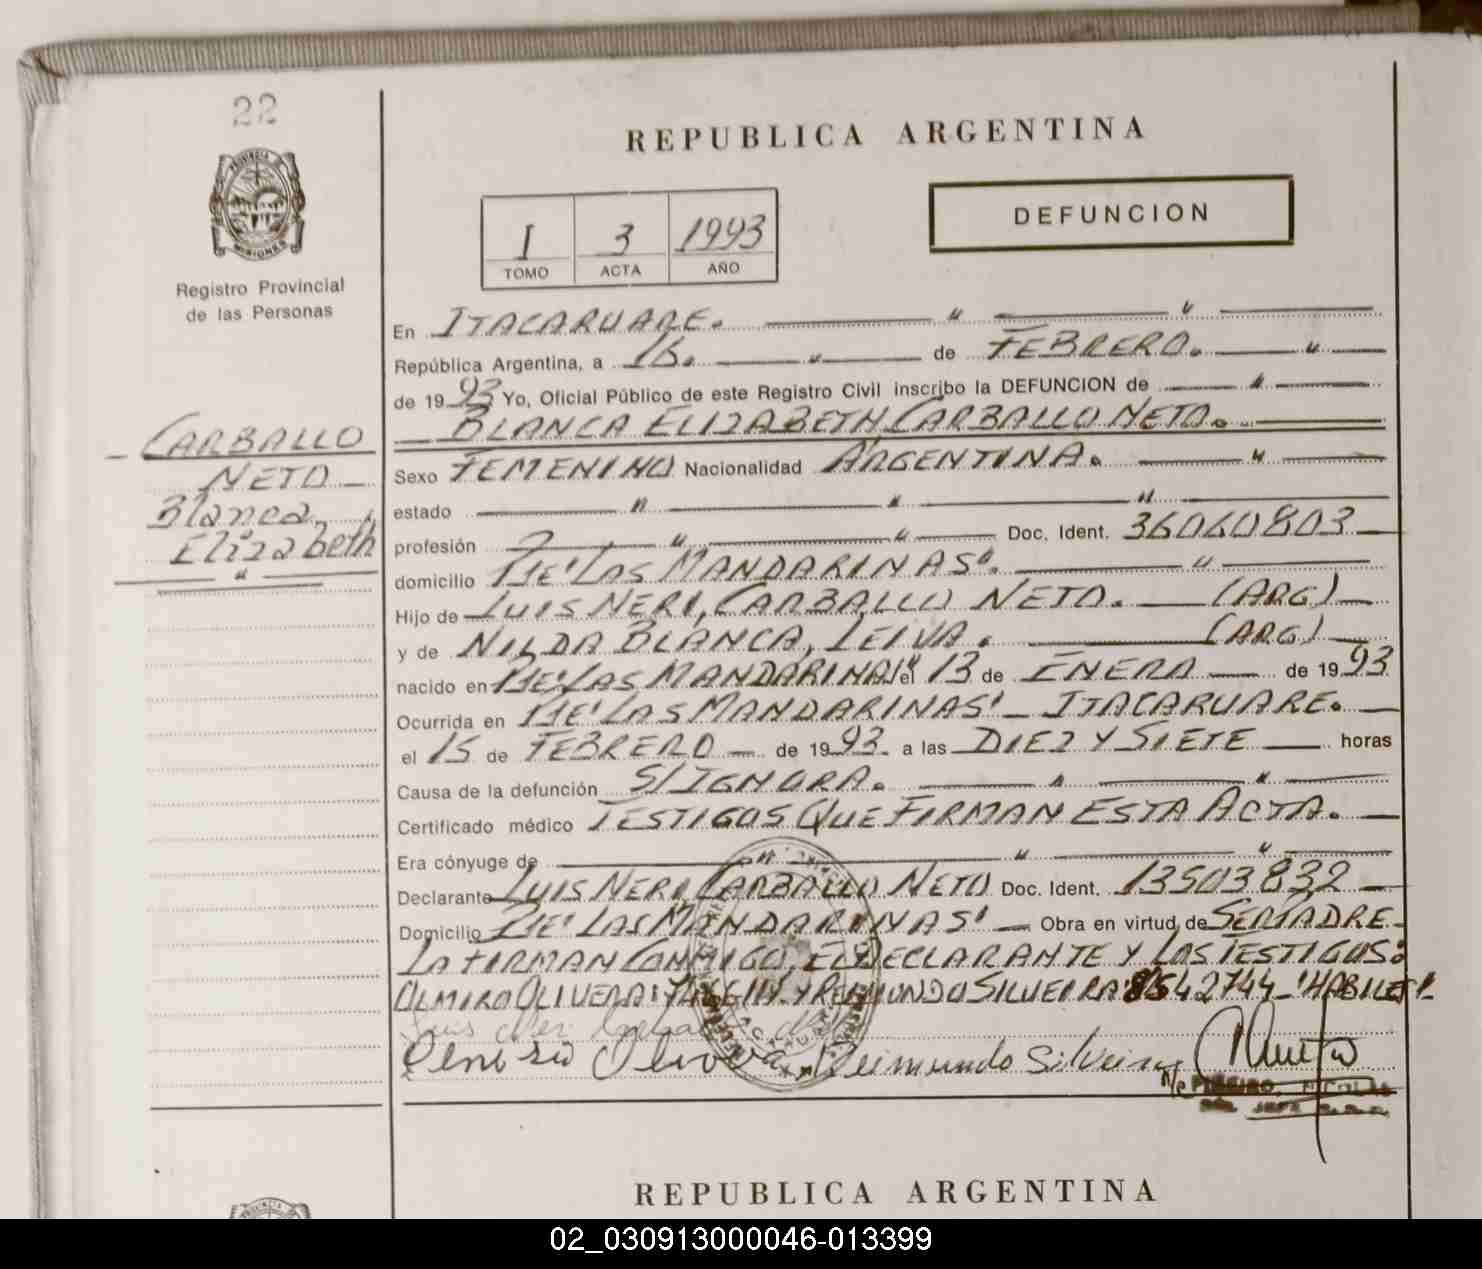 22
REPUBLICA ARGENTINA
PROVINCIA DE
MISIONES
Registro Provincial
de las Personas
I 3 1993
TOMO ACTA AÑO
DEFUNCION
CARBALLO
NETO
Blanca
Elizabeth
En ITACARUARE.
República Argentina, a 16. de FEBRERO.
de 1993 Yo, Oficial Público de este Registro Civil inscribo la DEFUNCION de
BLANCA ELIZABETH CARBALLO NETO.
Sexo FEMENINO Nacionalidad ARGENTINA.
estado
profesión Doc. Ident. 36060803
domicilio LAS MANDARINAS".
Hijo de LUIS NERI, CARBALLO NETO. (ARG)
y de NILDA BLANCA, LEIVA. (ARG)
nacido en LAS MANDARINAS" el 13 de ENERO de 1993
Ocurrida en LAS MANDARINAS" ITACARUARE.
el 15 de FEBRERO de 1993 a las DIEZ Y SIETE horas
Causa de la defunción S/IGNORA.
Certificado médico TESTIGOS QUE FIRMAN ESTA ACTA.
Era cónyuge de
Declarante LUIS NERI, CARBALLO NETO Doc. Ident. 13503832
Domicilio LAS MANDARINAS" Obra en virtud de SER PADRE
LA FIRMAN CONMIGO, EL DECLARANTE Y LOS TESTIGOS:
OLMIRO OLIVERA Y REIMUNDO SILVEIRA 8542744 "HABILES"
Reimundo Silveira
REPUBLICA ARGENTINA
02_030913000046-013399